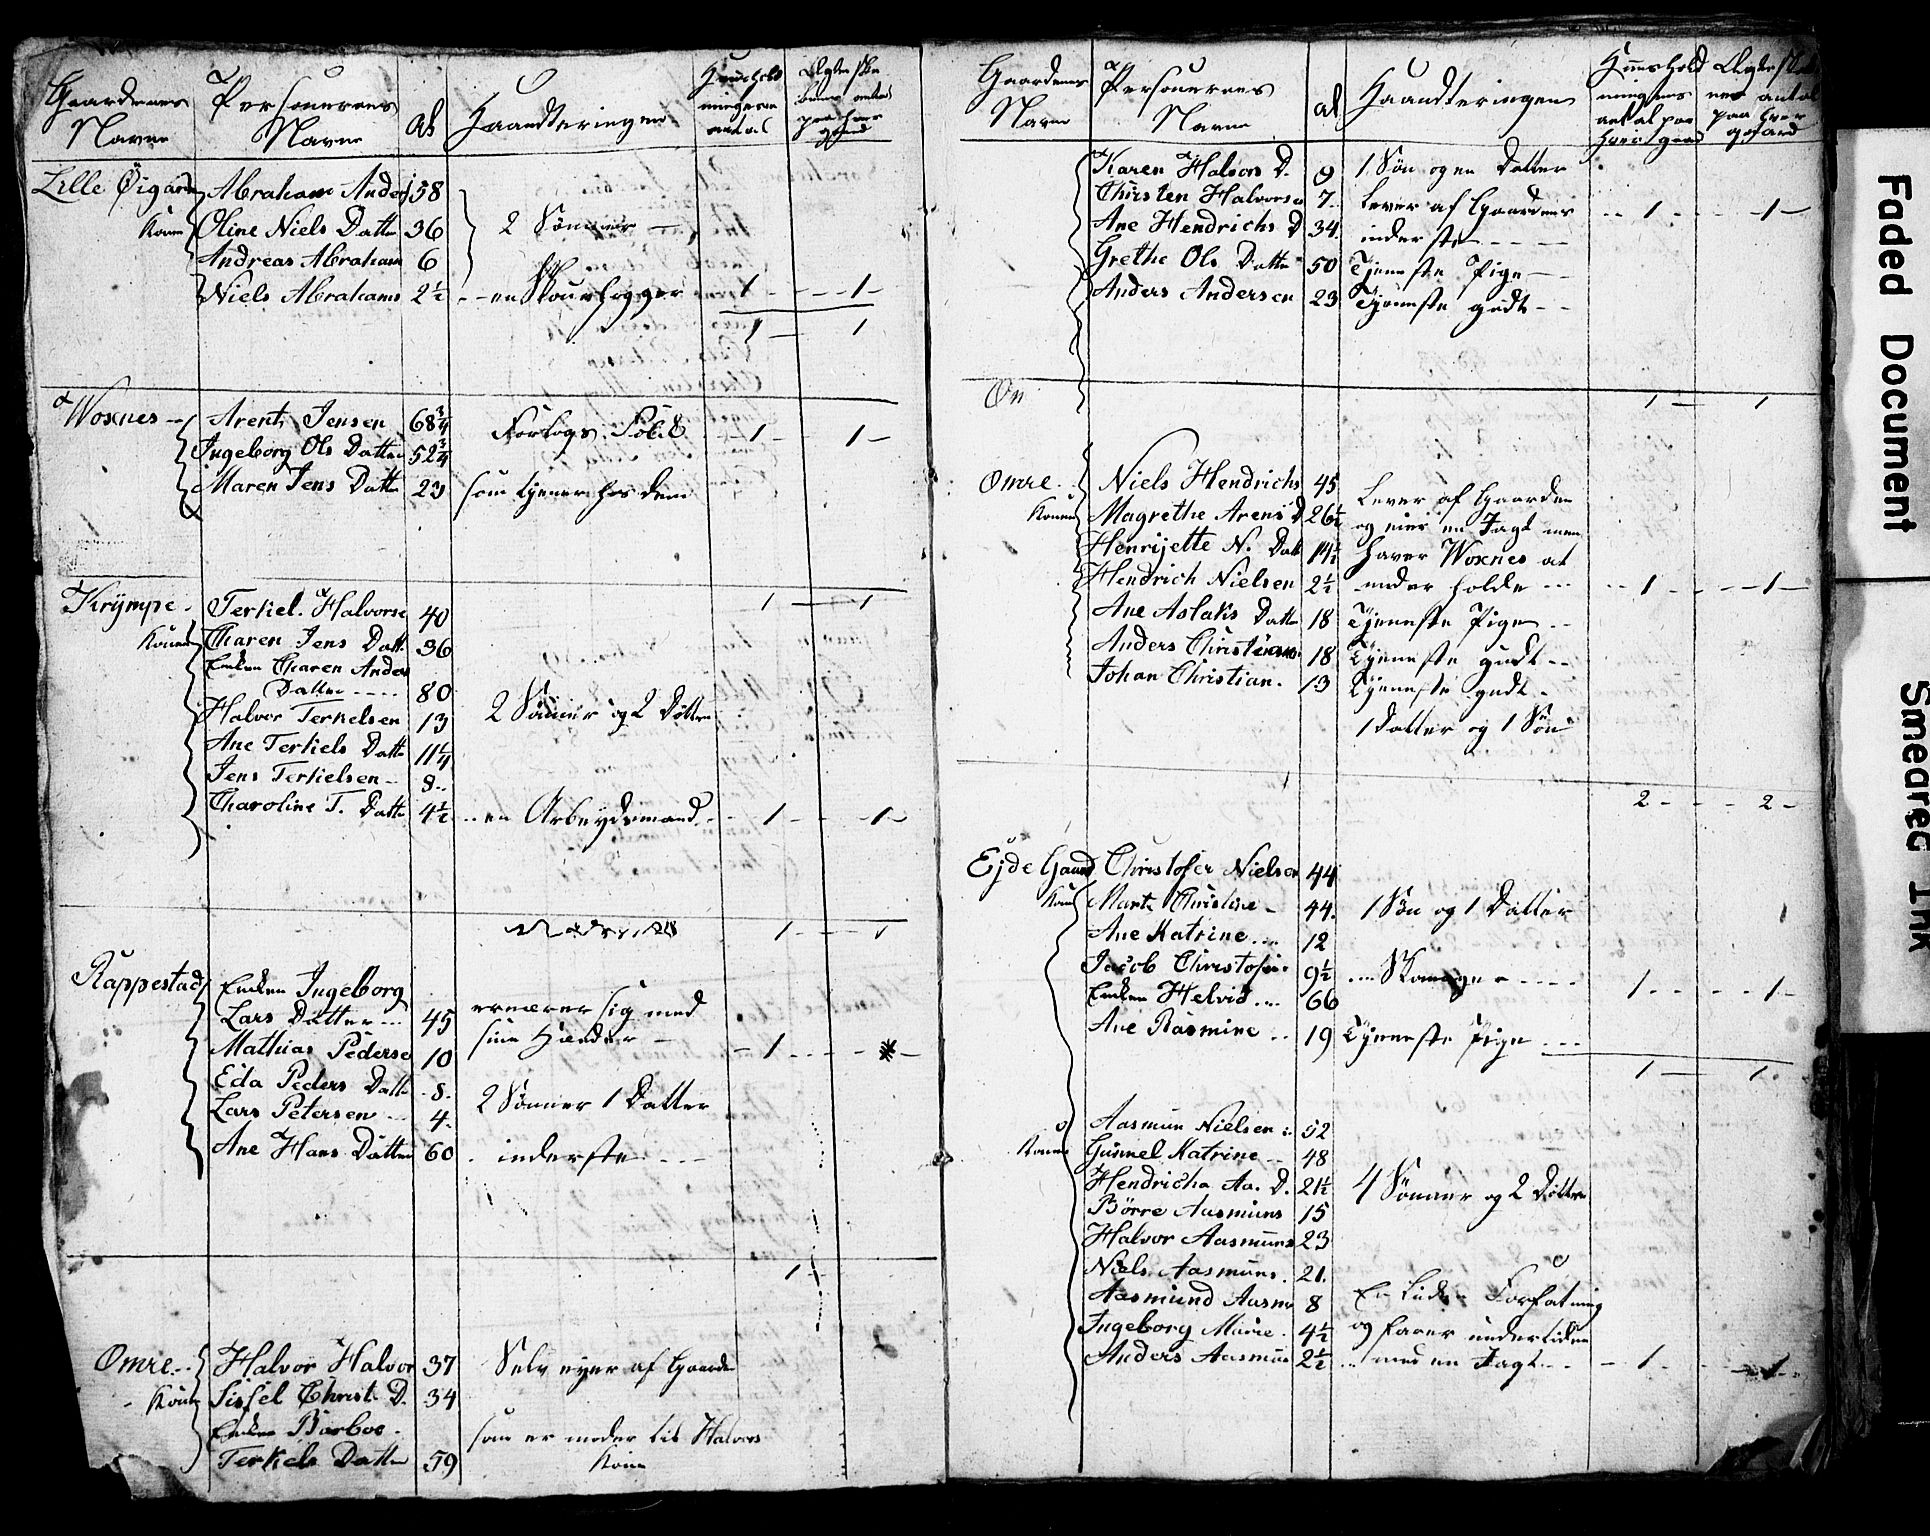 Gaardenes Navne
Personernes Navne
al
Haandteringen
Huusholdningernes antal
Ægteskabernes antal paa hver gaard
Lille Øigarden Abraham Anders 58
Konen Oline Niels Datter 36 2 Sønner
Andreas Abraham 6
Niels Abrahams 2½ - - en Skoufogger 1 - - - 1 -
1 - 1
Woxnes - Arent Jensen 68¾ Forlogs - 1 - 1 -
Ingeborg Ols Datter 52¾
Maren Jens Datter 23 som tjener hos dem
1 - 1
Krÿmpe - Terkel Halvorse 40
Konen Charen Jens Datt 36
Enken Charen Anders
Datter - - - - 80
Halvor Terkelsen 13 2 Sønner og 2 Døttre
Ane Terkels Datte 11¼
Jens Terkelsen - 8 -
Charoline T. Datte 4½ - - en Arbeydsmand - - 1 - - - 1 -
1 - 1
Rappestad Enken Ingeborg
Lars Datter - - - 45 ernærer sig med
Mathias Pederse 10 sine Hænder - - 1 - - -
Eda Peders Datte 8 -
Lars Petersen - - 4 - 2 Sønner 1 Datter
Ane Hans Datter 60 - inderste - - -
1 -
Omre - - Halvor Halvor 37 Selv eyer af Gaarden
- Konen Sissel Christ. D. 34
Enken Barboe -
Terkels Datte 59 som er moder til Halvors
Kone
Gaardenes Navne
Personernes Navne
al
Haandteringen
Huusholdningens antal paa hver gaard
Ægteskabernes antal paa hver gaard
Karen Halvors D. 9 1 Søn og en Datter
Christen Halvorsen 7 - Lever af Gaardens - - 1 - - - 1 -
Ane Hendrichs D 34 inderste - - - -
Grethe Ols Datte 50 Tjeneste Pige - -
Anders Andersen 23 Tjeneste gut - -
On 1 - 1
Omre - Niels Hendrichs 45 Lever af Gaarden
Konen Magrethe Arens D 26½ og eier en Jagt men
Henrijette N. Datt 14½ haver Woxnes at
Hendrich Nielsen 2½ under holde - - - - - 1 - - - 1 -
Ane Aslaks Datte 18 Tjeneste Pige - -
Anders Christians 18 Tjeneste gut - -
Johan Christian - 13 Tjeneste gut -
1 Datter og 1 Søn
2 - - - 2 -
Ejde Gaard Christofer Nielsen 44
Kone Marte Christine - 44 - 1 Søn og 1 Datter
Ane Katrine - - - 12
Jacob Christofer 9½ - - - Skomager - - - -
Enken Helvid - - - 66 1 - - - 1 -
Ane Rasmine - - 19 Tjeneste Pige - - -
1 - 1 -
Aasmun Nielsen 52
Konen Gunnel Katrine - 48
Hendricha Aa. D. 21½ 4 Sønner og 2 Døttre
Börre Aasmuns 15
Halvor Aasmuns 23
Niels Aasmuns - 21 -
Aasmund Aasmu 8 En Liden Forfatning
Ingeborg Marie - 4½ og farer undertiden
Anders Aasmun 2½ - - med en Jagt - - - 1 - - - 1 - -
Faded Document
Smeared Ink